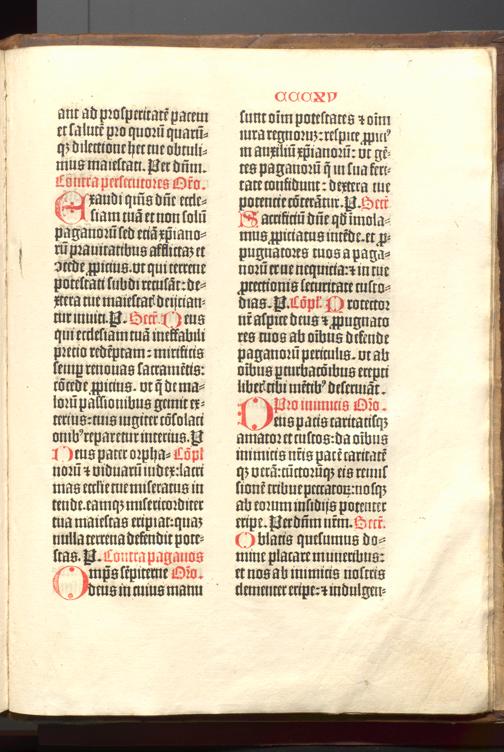 CCCXV
ant ad prosperitatē pacem
et salutē pro quorū quarū-
qꝫ dilectione hec tue obtuli-
mus maiestati. Per dn̄m.
Contra persecutores Oro.
Exaudi qn̄s dn̄e eccle-
siam tuā et non solū
paganorū sed etiā xp̄iano-
rū prauitatibus afflictaꝫ et
ꝯcede ꝓpicius. vt qui terrene
potestati subdi recusāt: de-
xtera tue maiestat deijcian-
tur inuiti. P. Secr̄. Deus
qui ecclesiam tuā ineffabili
precio redēptam: mirificis
semꝑ renouas sacramētis:
cōcede ꝓpicius. vt q̄ de ma-
lorū passionibus gemit ex-
terius: tuis iugiter cōsolati
onibꝰ reparetur interius. P
Deus pater orpha- Cōpl
norū ⁊ viduarū iudex: lacri
mas ecclie tue miseratus in
tende. eamqꝫ misericorditer
tua maiestas eripiat: quaꝫ
nulla terrena defendit pote-
stas. P. Contra paganos
Omp̄s sēpiterne Oro.
deus in cuius manu
sunt oīm potestates ⁊ oīm
iura regnorūꝫ: respice ꝓpiciꝰ
in auxiliū xp̄ianorū: vt gē-
tes paganorū q̄ in sua feri-
tate confidunt: dextera tue
potencie cōterātur. P. Secr̄
Sacrificiū dn̄e qd̄ imola-
mus ꝓpiciatus intēde. et ꝓ-
pugnatores tuos a paga-
norū erue nequicia: ⁊ in tue
ꝓtectionis securitate custo-
dias. P. Cōpl. Protector
nr̄ aspice deus ⁊ ꝓpugnato
res tuos ab oībus defende
paganorū periculis. vt ab
oībus ꝑturbatōibus erepti
liberꝭ tibi mētibꝰ deseruāt.
Pro inimicis Oro.
Deus pacis caritatisqꝫ
amator et custos: da oībus
inimicis nr̄is pacē caritatē
qꝫ verā: cūctorūqꝫ eis remis
sionē tribue peccatoꝝ: nosqꝫ
ab eorum insidijs potenter
eripe. Per dn̄m nr̄m. Secr̄.
Oblatis quesumus do-
mine placare muneribus:
et nos ab inimicis nostris
clementer eripe: ⁊ indulgen-